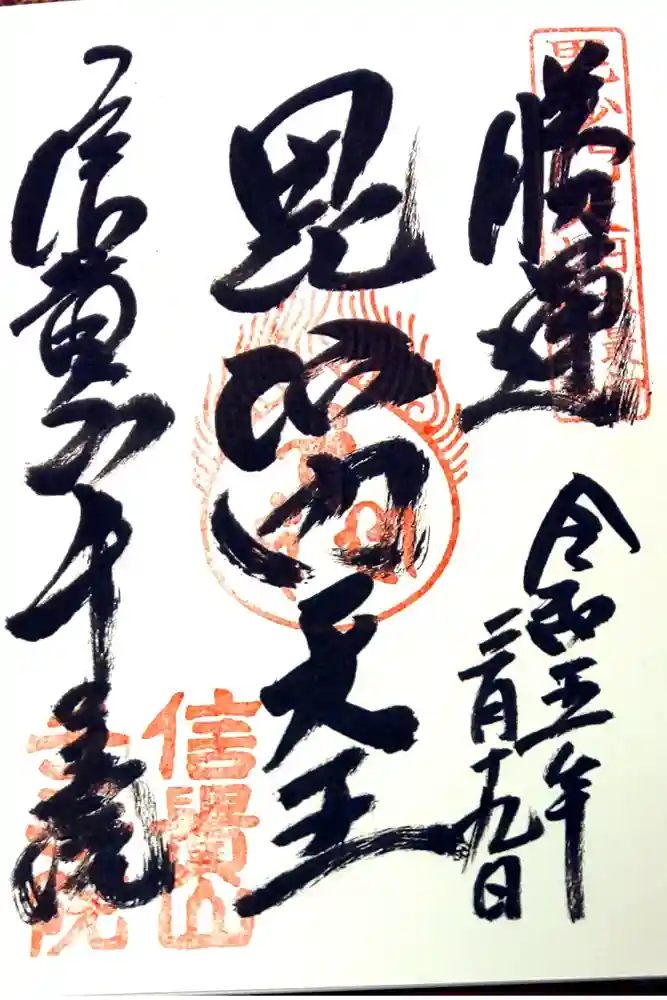 勝運
令和五年
二月十九日
毘沙門天王
信貴山千手院
信貴山